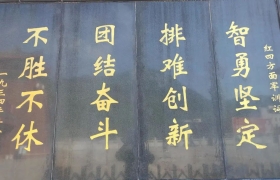 红四方面军训词
智勇坚定
排难创新
团结奋斗
不胜不休
一九三四